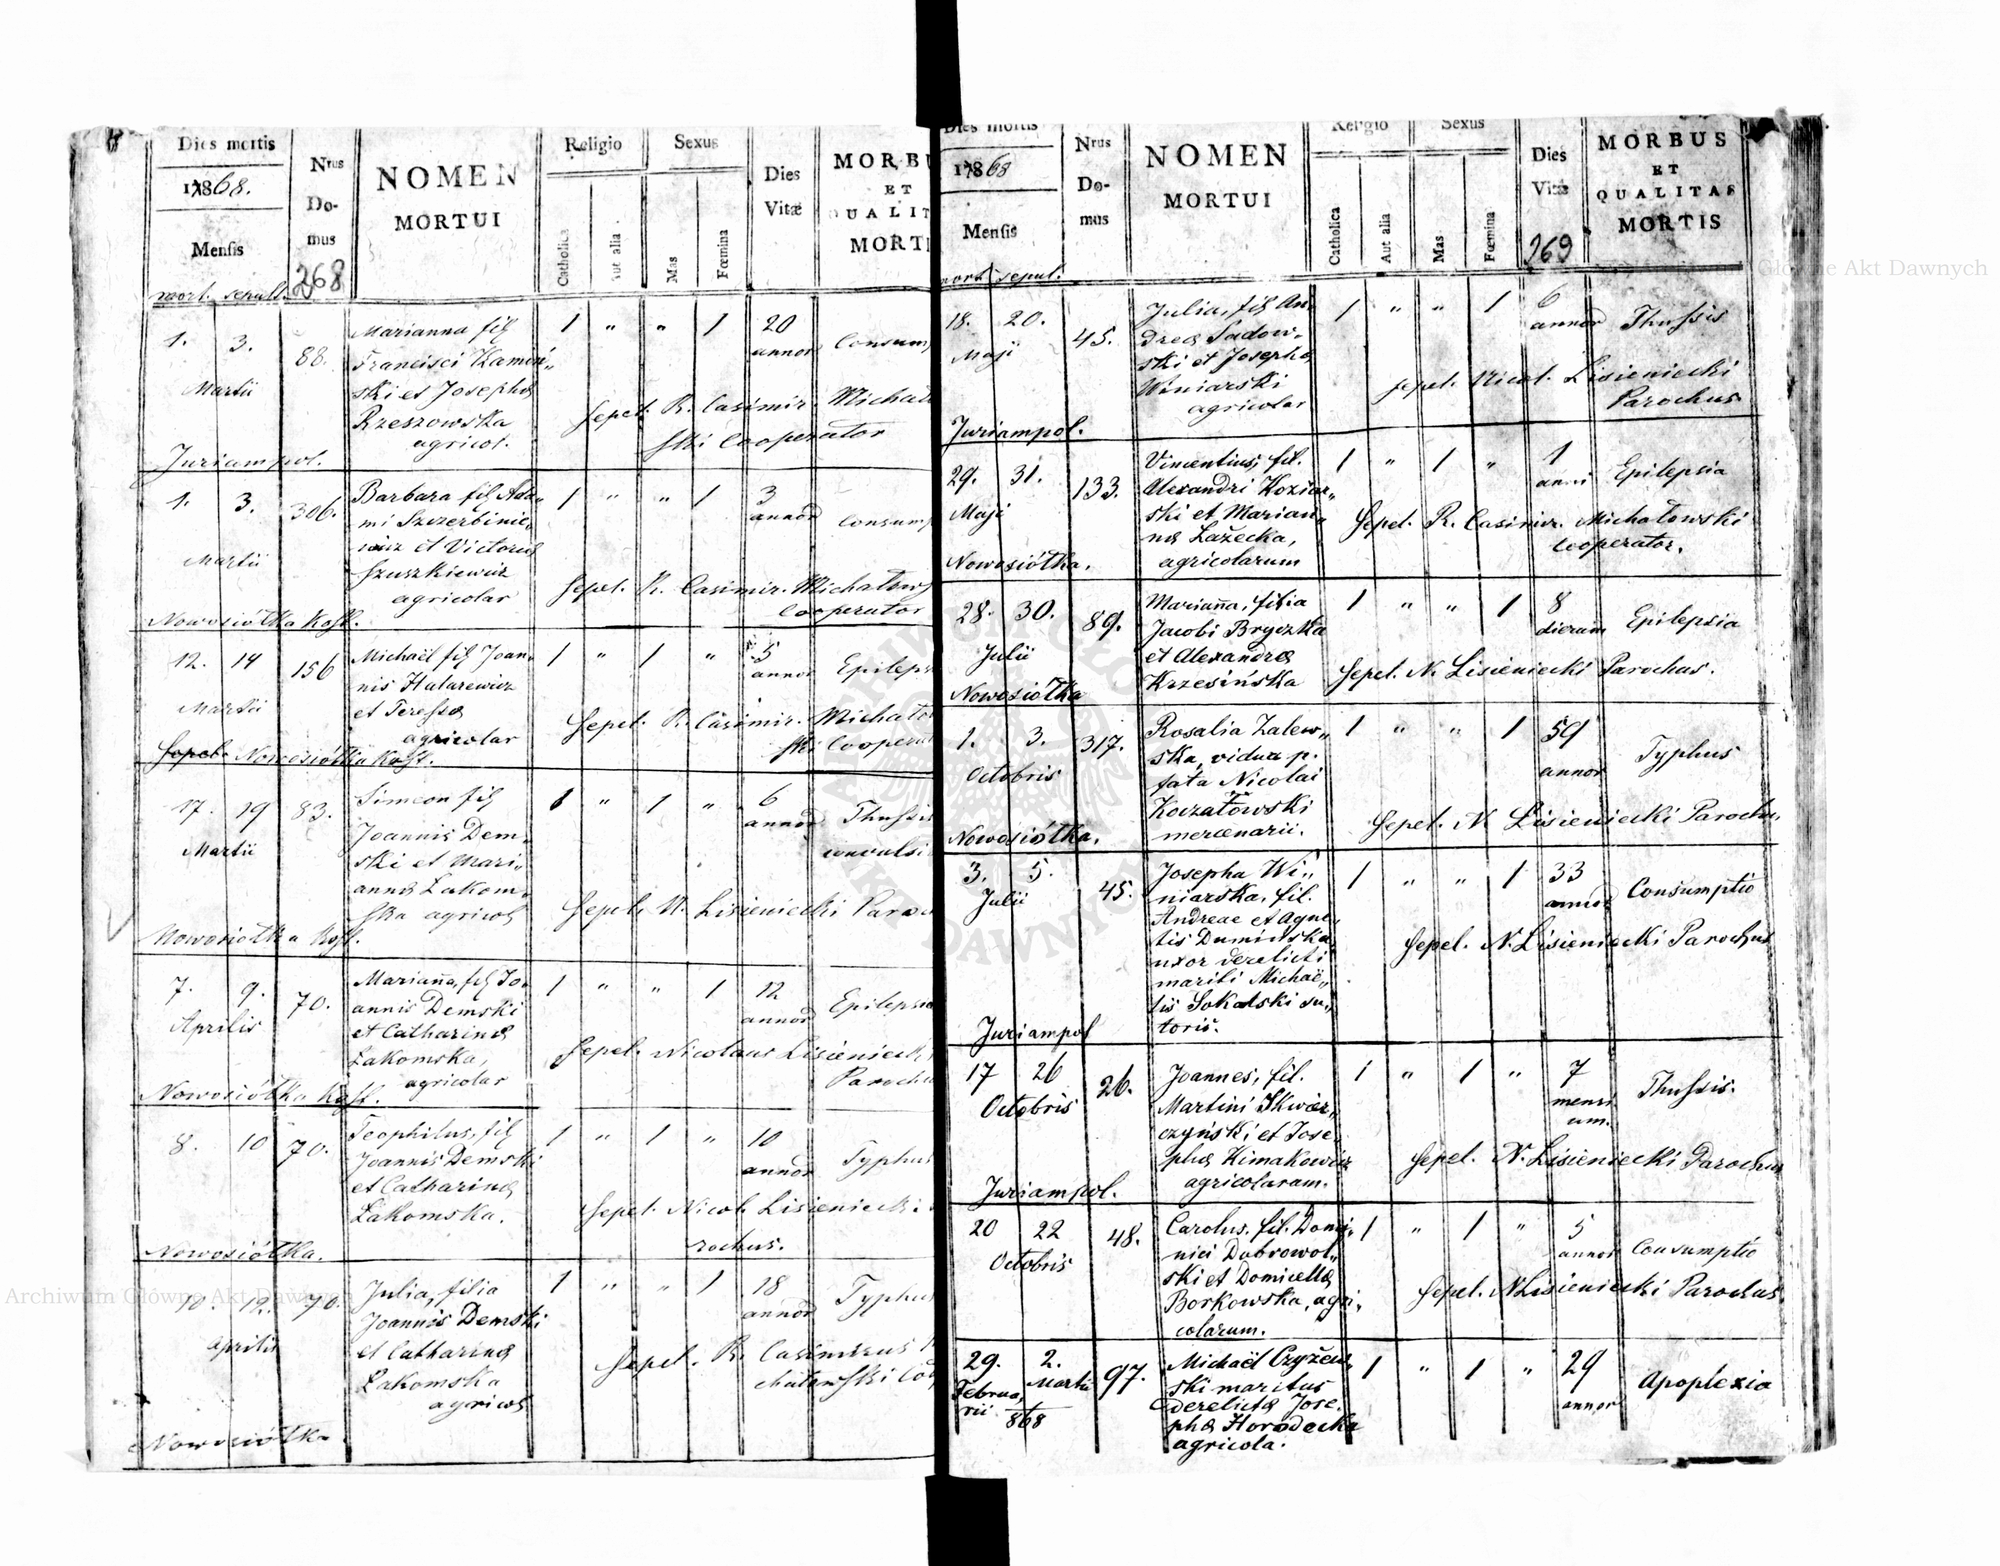 Dies mortis
1868.
Mensis
mort. sepult.
Nrus
Do-
mus
268
NOMEN
MORTUI
Religio
Catholica
Aut alia
Sexus
Mas
Fœmina
Dies
Vitæ
MORBU
ET
QUALIT
MORTI
1. 3.
Martii
88.
Marianna fil
Francisci Kamiń„
ski et Josepha
Rzeszowska
agricol.
1 „ „ 1
20
annor
Consum
Sepel. R. Casimir. Michał
ski Cooperator
Juriampol.
1. 3.
Martii
306.
Barbara fil Ada„
mi Szczerbinie„
wicz et Victoria
Szuszkiewicz
agricolar
1 „ „ 1
3
annor
Consum
Sepel. R. Casimir. Michałows
Cooperator
Nowosiółka Kost.
12. 14
Martii
156
Michaël fil Joan„
nis Halarewicz
et Teressa
agricolar
1 „ 1 „
5
annor
Epileps
Sepel. R. Casimir. Michało
ski Cooperat
Sepel. Nowosiółka Kost.
17. 19
Martii
83.
Simeon fil
Joannis Dem„
ski et Mari„
anna Łakom„
ska agricol
1 „ 1 „
6
annor
Thussis
convulsi
Sepel. N. Lisieniecki Paro
Nowosiółka Kost.
7. 9.
Aprilis
70.
Marianna, fil Jo„
annis Demski
et Catharina
Łakomska,
agricolar
1 „ „ 1
12
annor
Epilepsia
Sepel. Nicolaus Lisienieck
Parochu
Nowosiółka Kost.
8. 10
70.
Teophilus, fil
Joannis Demski
et Catharina
Łakomska.
1 „ 1 „
10
annor
Typhus
Sepel. Nicol. Lisieniecki
rochus.
Nowosiółka.
10. 12.
Aprilis
70.
Julia, filia
Joannis Demski
et Catharina
Łakomska
agricol
1 „ „ 1
18
annor
Typhus
Sepel. R. Casimirus
chałowski Coo
Nowosiółka
Dies mortis
1868
Mensis
mort. sepul.
Nrus
Do-
mus
NOMEN
MORTUI
Religio
Catholica
Aut alia
Sexus
Mas
Fœmina
Dies
Vitæ
269
MORBUS
ET
QUALITAS
MORTIS
18. 20.
Maji
45.
Julia, fil An„
drea Sadow„
ski et Josepha
Winiarski
agricolar
1 „ „ 1
6
annor
Thussis
Sepel. Nicol. Lisieniecki
Parochus
Juriampol.
29. 31.
Maji
133.
Vincentius, fil.
Alexandri Koziar„
ski et Marian„
na Łażecka,
agricolarum
1 „ 1 „
1
anni
Epilepsia
Sepel. R. Casimir. Michałowski
Cooperator.
Nowosiółka.
28. 30.
Julii
89.
Marianna, filia
Jacobi Bryczka
et Alexandra
Krzesińska
1 „ „ 1
8
dierum
Epilepsia
Sepel. N. Lisieniecki Parochus.
Nowosiółka
1. 3.
Octobris
317.
Rosalia Zalew„
ska, vidua p.
fata Nicolai
Koczałowski
mercenarii.
1 „ „ 1
59
annor
Typhus
Sepel. N. Lisieniecki Parochu,
Nowosiółka.
3. 5.
Julii
45.
Josepha Wi„
niarska, fil.
Andreae et Agne„
tis Duminska,
uxor derelicti
mariti Michaë„
lis Sokalski su„
toris.
1 „ „ 1
33
annor
Consumptio
Sepel. N. Lisieniecki Parochus
Juriampol
17 26
Octobris
26.
Joannes, fil.
Martini Skwar„
czyński et Jose„
pha Kimakowicz
agricolarum.
1 „ 1 „
7
mensi
um.
Thussis.
Sepel. N. Lisieniecki Parochus
Juriampol.
20 22
Octobris
48.
Carolus, fil. Domi„
nici Dobrowol„
ski et Domicella
Borkowska, agri„
colarum.
1 „ 1 „
5
annor
Consumptio
Sepel. N. Lisieniecki Parochus.
29. 2.
Februa„ Martii
rii 868
97.
Michaël Czyżew„
ski maritus
derelicta Jose„
pha Horodecka
agricola.
1 „ 1 „
29
annor
Apoplexia
Archiwum Główne Akt Dawnych
Archiwum Główne Akt Dawnych
ARCHIWUM GŁÓWNE AKT DAWNYCH